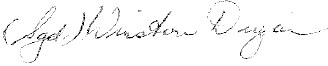 (Sgd) Winston Dugan